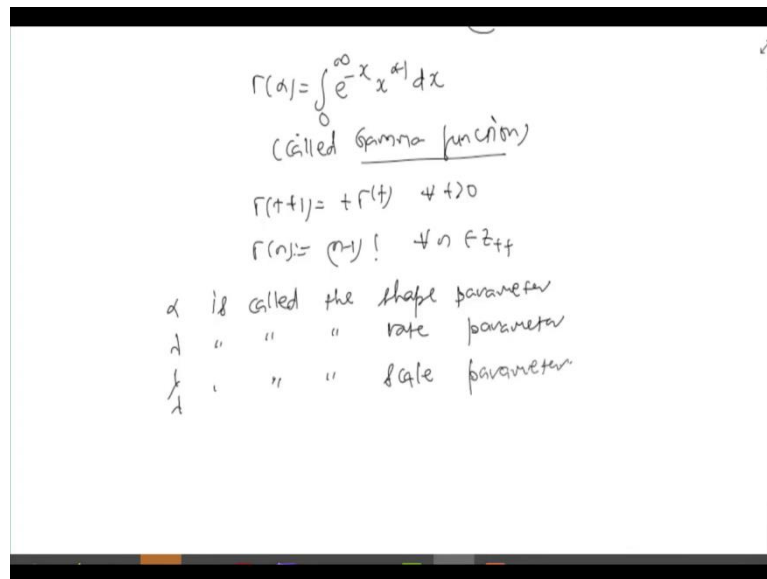 Γ(α) = ∫₀^∞ e^{-x} x^{α-1} dx
(called Gamma function)
Γ(t+1) = t Γ(t) ∀ t>0
Γ(n) = (n-1)! ∀ n ∈ Z₊₊
α is called the shape parameter
λ " " " rate parameter
1/λ " " " scale parameter